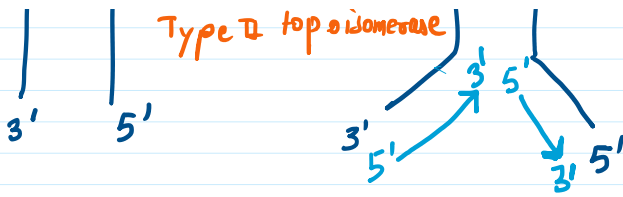 Type II topoisomerase
3' 5'
3' 5'
3' 5'
5' 3'